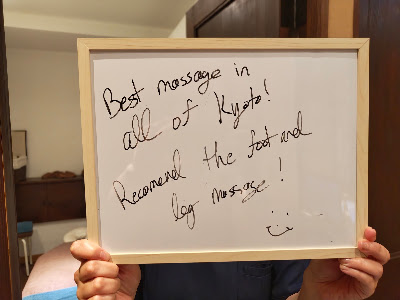 Best massage in
all of Kyoto!
Recomend the foot and
leg massage!